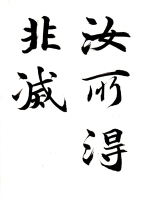 汝所得
非滅